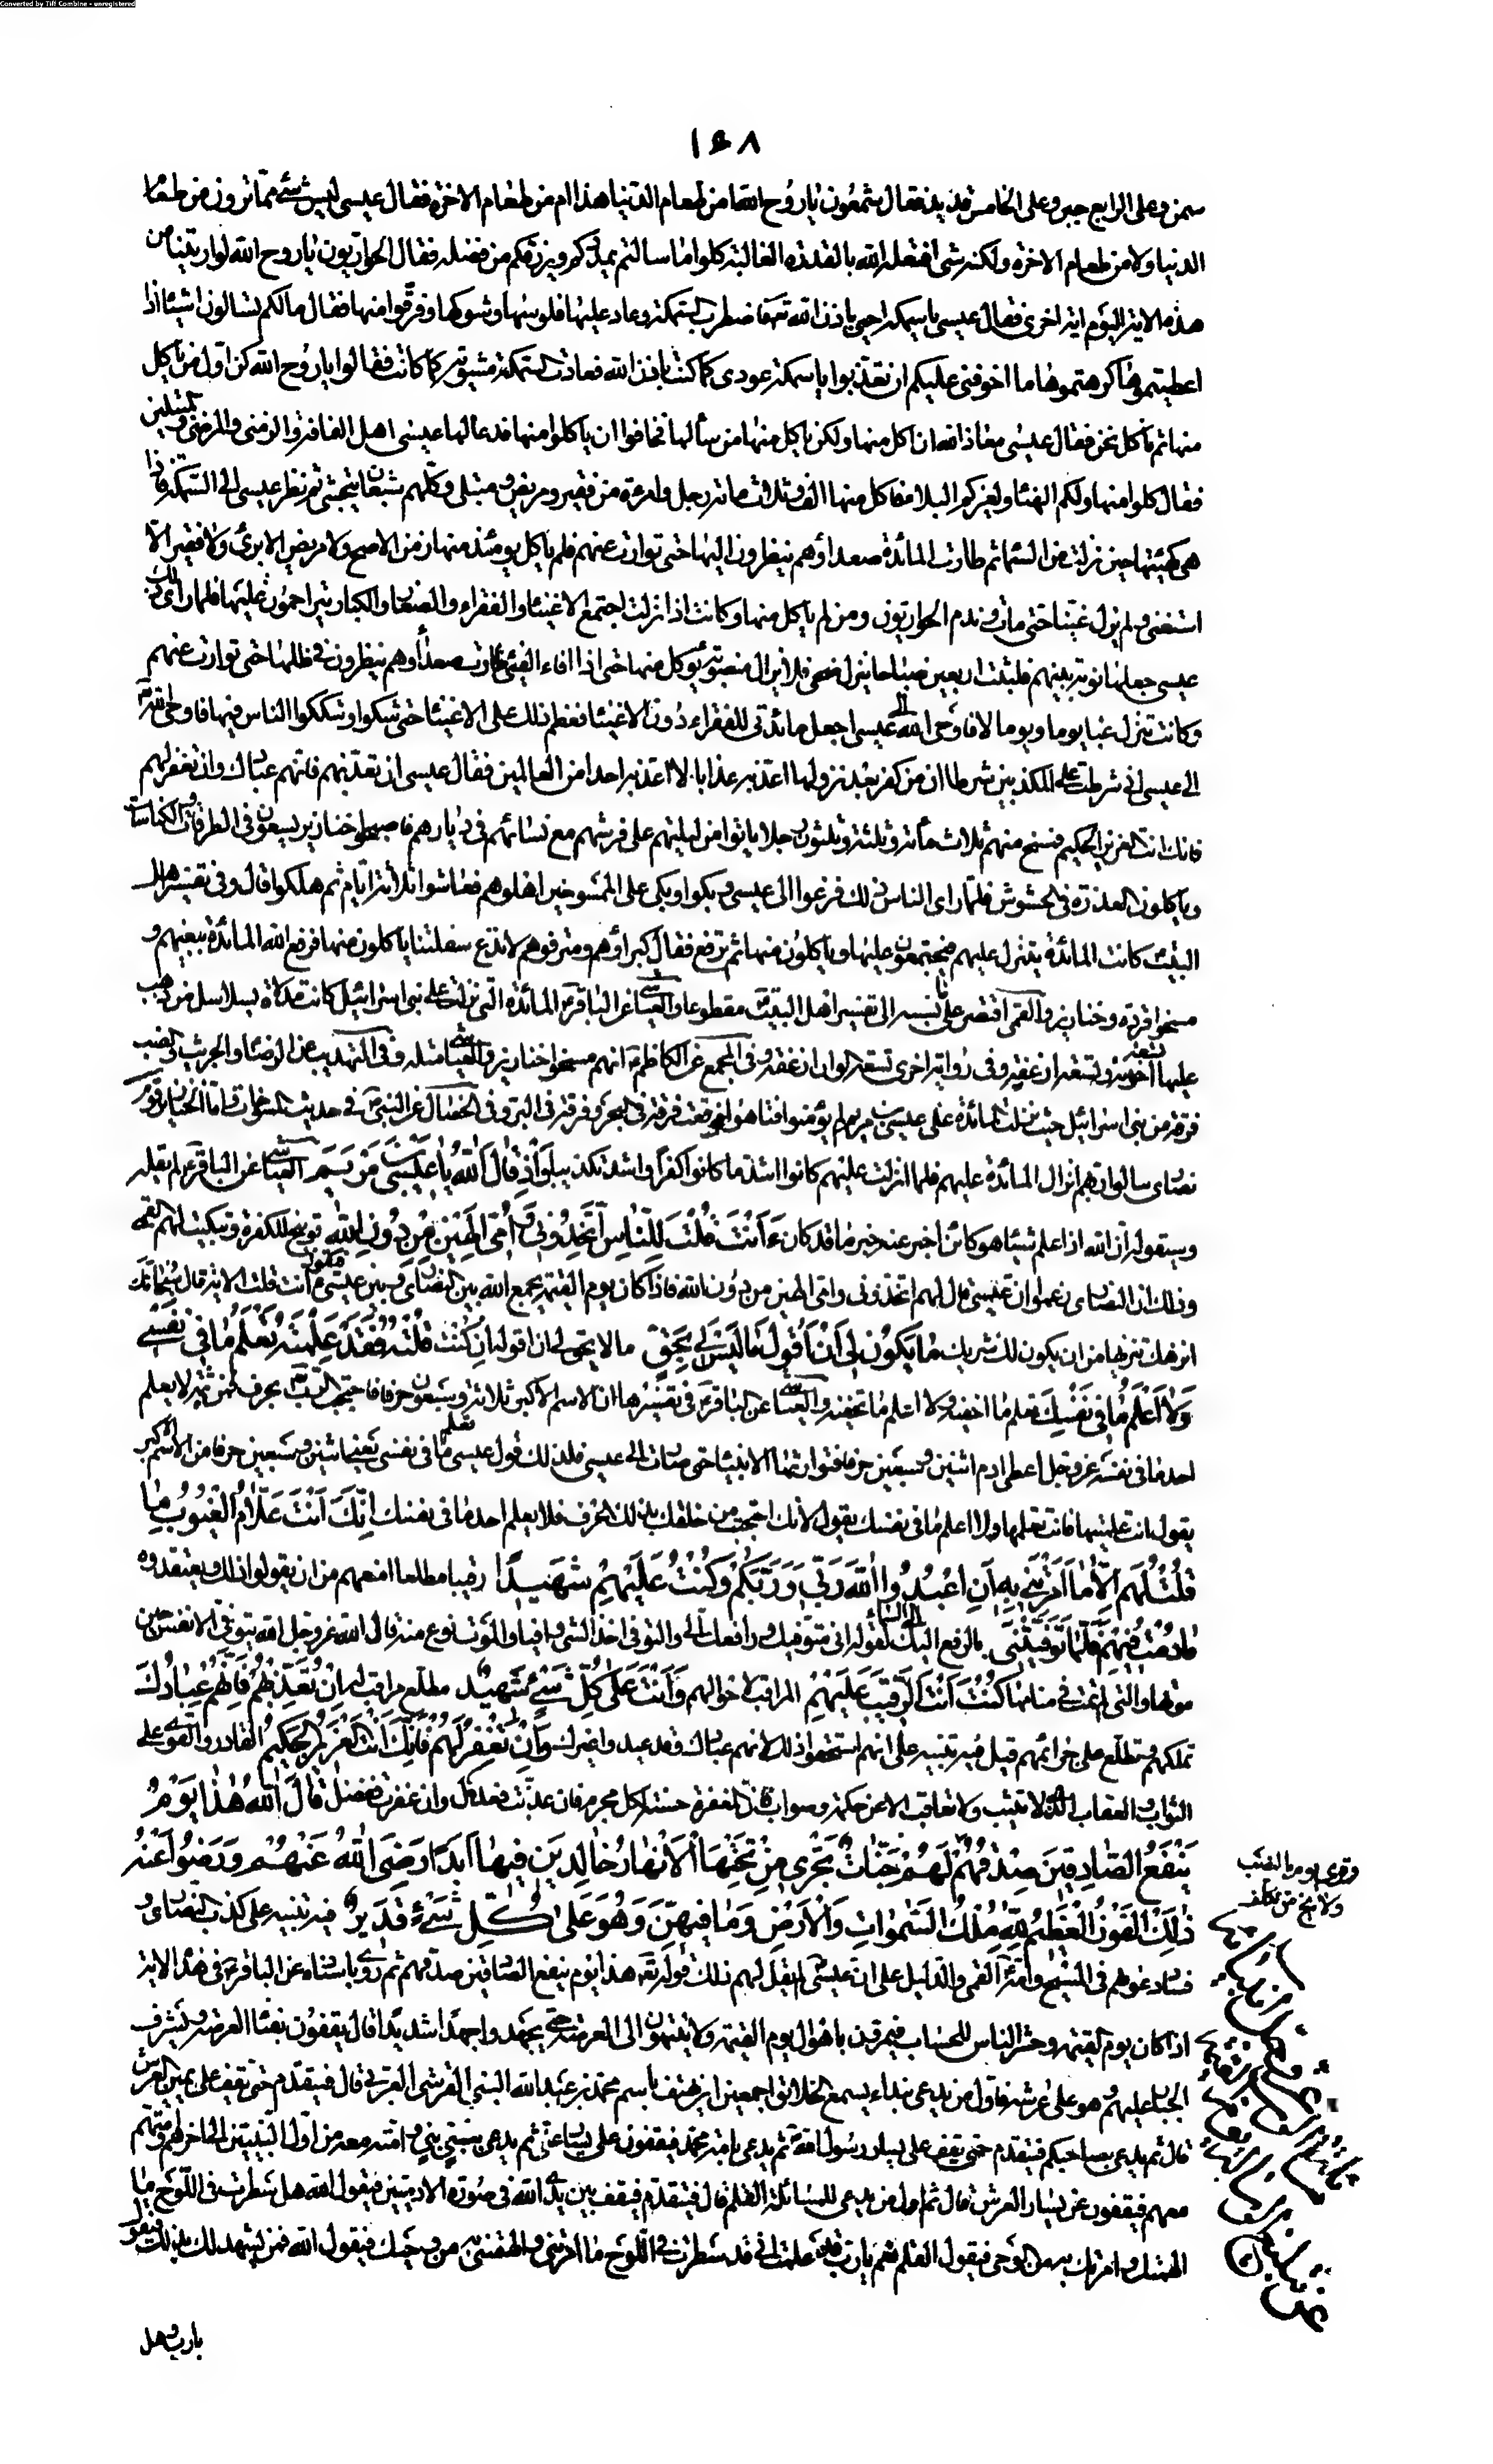 Converted by Tiff Combine - unregistered
١٤٨
سمن وعلى الرابع جبن وعلى الخامس قديد فقال شمعون يا روح الله امن طعام الدنيا هذا ام من طعام الاخرة فقال عيسى ليس شئ مما ترون من طعام
الدنيا ولا من طعام الاخرة ولكنه شئ افتعله الله بالقدرة الغالبة كلوا مما سالتم يمددكم ويزدكم من فضله فقال الحواريون يا روح الله لو اريتنا من
هذه الاية اليوم اية اخرى فقال عيسى يا سمكة احيي باذن الله تع فاضطربت السمكة وعاد عليها فلوسها وشوكها وفزعوا منها فقال ما لكم تسالون اشياء اذا
اعطيتموها كرهتموها ما اخوفني عليكم ان تعذبوا يا سمكة عودى كما كنت باذن الله فعادت السمكة مشوية كما كانت فقالوا يا روح الله كن اول من ياكل
منها ثم ناكل نحن فقال عيسى معاذ الله ان اكل منها ولكن ياكل منها من سألها فخافوا ان ياكلوا منها فدعا لها عيسى اهل الفاقة والزمنى والمرضى والمبتلين
فقال كلوا منها ولكم الهناء ولغيركم البلاء فاكل منها الف وثلاث مائة رجل وامرءة من فقير ومريض ومبتلى وكلهم شبعان يتجشى ثم نظر عيسى الى السمكة فاذا
هى كهيئتها حين نزلت من السماء ثم طارت المائدة صعداً وهم ينظرون اليها حتى توارت عنهم فلم ياكل يومئذ منها زمن الا صح ولا مريض الا برئ ولا فقير الا
استغنى ولم يزل غنيا حتى مات وندم الحواريون ومن لم ياكل منها وكانت اذا نزلت اجتمع الاغنياء والفقراء والصغار والكبار يتزاحمون عليها فلما راى ذلك
عيسى جعلها نوبة بينهم فلبثت اربعين صباحا ينزل ضحى فلا يزال منصوبة يؤكل منها حتى اذا فاء الفئ طارت صعداً وهم ينظرون في ظلها حتى توارت عنهم
وكانت تنزل غبا يوما ويوما لا فاوحى الله الى عيسى اجعل مائدتى للفقراء دون الاغنياء فعظم ذلك على الاغنياء حتى شكوا وشككوا الناس فيها فاوحى الله
الى عيسى انى شرطت على المكذبين شرطا ان من كفر بعد نزولها اعذبه عذابا لا اعذبه احدا من العالمين فقال عيسى ان تعذبهم فانهم عبادك وان تغفر لهم
فانك انت العزيز الحكيم فمسخ منهم ثلاث مائة وثلثة وثلثون رجلا باتوا من ليلتهم على فرشهم مع نسائهم في ديارهم فاصبحوا خنازير يسعون في الطرقات والكناسات
وياكلون العذرة في الحشوش فلما راى الناس ذلك فزعوا الى عيسى وبكوا وبكى على الممسوخين اهلوهم فعاشوا ثلاثة ايام ثم هلكوا قال وفي تفسير اهل
البيت كانت المائدة ينزل عليهم فيجتمعون عليها وياكلون منها ثم ترفع فقال كبراؤهم ومترفوهم لا ندع سفلتنا ياكلون منها فرفع الله المائدة ببغيهم و
مسخوا قردة وخنازير والقمى اقتصر على تفسير اهل البيت مقطوعا والعياشي عن الباقر المائدة التي نزلت على بنى اسرائيل كانت مدلاة بسلاسل من ذهب
عليها تسعة احوتة وتسعة ارغفة وفي رواية اخرى تسعة الوان ارغفة وفي المجمع عن الكاظم انهم مسخوا خنازير والعياشي مثله وفي التهذيب عن الرضا والجريث والضب
فرقة من بنى اسرائيل حيث نزلت المائدة على عيسى بن مريم لم يؤمنوا فتاهوا فوقعت فرقة في البحر وفرقة في البر وفي الخصال عن النبي في حديث المسوخات واما الخنازير فقوم
نصارى سالوا ربهم انزال المائدة عليهم فلما انزلت عليهم كانوا اشد ما كانوا كفراً واشد تكذيبا وَاِذْ قالَ اللهُ يا عيسَى بْنَ مَرْيَمَ العياشي عن الباقر لم يقله
وسيقوله ان الله اذا علم شيئا هو كائن اخبر عنه خبر ما قد كان ءَاَنْتَ قُلْتَ لِلنّاسِ اتَّخِذُونى وَاُمِّىَ اِلهَيْنِ مِنْ دُونِ اللهِ توبيخ للكفرة وتبكيت لهم القمى
وذلك ان النصارى زعموا ان عيسى قال لهم اتخذونى وامى الهين من دون الله فاذا كان يوم القيمة يجمع الله بين النصارى وبين عيسى فيقول ءانت قلت الاية قالَ سُبْحانَكَ
انزهك تنزيها من ان يكون لك شريك ما يَكُونُ لى اَنْ اَقُولَ ما لَيْسَ لى بِحَقٍّ ما لا يحق لى ان اقوله اِنْ كُنْتُ قُلْتُهُ فَقَدْ عَلِمْتَهُ تَعْلَمُ ما فى نَفْسى
وَلا اَعْلَمُ ما فى نَفْسِكَ تعلم ما اخفيه ولا اعلم ما تخفيه والعياشي عن الباقر في تفسيرها ان الاسم الاكبر ثلاثة وسبعون حرفا فاحتجب الرب بحرف فمن ثمة لا يعلم
احد ما في نفسه عز وجل اعطى ادم اثنين وسبعين حرفا فتوارثها الانبياء حتى صارت الى عيسى فلذلك قول عيسى تعلم ما في نفسى يعنى اثنين وسبعين حرفا من الاسم الاكبر
يقول انت علمتنيها فانت تعلمها ولا اعلم ما في نفسك يقول لانك احتجبت من خلقك بذلك الحرف فلا يعلم احد ما في نفسك اِنَّكَ اَنْتَ عَلّامُ الْغُيُوبِ ما
قُلْتُ لَهُمْ اِلّا ما اَمَرْتَنى بِهِ اَنِ اعْبُدُوا اللهَ رَبّى وَرَبَّكُمْ وَكُنْتُ عَلَيْهِمْ شَهيداً رقيبا مطلعا امنعهم من ان يقولوا ذلك ويعتقدوه
ما دُمْتُ فيهِمْ فَلَمّا تَوَفَّيْتَنى بالرفع اليك الى السماء لقوله انى متوفيك ورافعك الى والتوفى اخذ الشئ وافيا والموت نوع منه قال الله عز وجل الله يتوفى الانفس حين
موتها والتى لم تمت في منامها كُنْتَ اَنْتَ الرَّقيبَ عَلَيْهِمْ المراقب لاحوالهم وَاَنْتَ عَلى كُلِّ شَئٍ شَهيدٌ مطلع مراقب له اِنْ تُعَذِّبْهُمْ فَاِنَّهُمْ عِبادُكَ
تملكهم وتطلع على جرائمهم قيل فيه تنبيه على انهم استحقوا ذلك لانهم عبادك وقد عبدوا غيرك وَاِنْ تَغْفِرْ لَهُمْ فَاِنَّكَ اَنْتَ الْعَزيزُ الْحَكيمُ القادر والقوى على
الثواب والعقاب الذى لا يثيب ولا يعاقب الا عن حكمة وصواب فان المغفرة حسنة لكل مجرم فان عذبت فعدل وان غفرت ففضل قالَ اللهُ هذا يَوْمُ
يَنْفَعُ الصّادِقينَ صِدْقُهُمْ لَهُمْ جَنّاتٌ تَجْرى مِنْ تَحْتِهَا الْاَنْهارُ خالِدينَ فيها اَبَداً رَضِىَ اللهُ عَنْهُمْ وَرَضُوا عَنْهُ
ذلِكَ الْفَوْزُ الْعَظيمُ لِلّهِ مُلْكُ السَّمواتِ وَالْاَرْضِ وَما فيهِنَّ وَهُوَ عَلى كُلِّ شَئٍ قَديرٌ فيه تنبيه على كذب النصارى و
فساد دعويهم في المسيح وامه القمى والدليل على ان عيسى لم يقل لهم ذلك قوله تع هذا يوم ينفع الصادقين صدقهم ثم روى باسناده عن الباقر في هذه الاية
اذا كان يوم القيمة وحشر الناس للحساب فيمرون باهوال يوم القيمة ولا ينتهون الى العرصة حتى يجهدوا جهدا شديدا قال يقفون بفناء العرصة ويشرف
الجبار عليهم وهو على عرشه فاول من يدعى بنداء يسمع الخلائق اجمعين ان يهتف باسم محمد بن عبد الله النبي القرشى العربى قال فيتقدم حتى يقف على يمين العرش
قال ثم يدعى بصاحبكم فيتقدم حتى يقف على يسار رسول الله ثم يدعى بامة محمد فيقفون على يسار على ثم يدعى بنبي نبي وامته معه من اول النبيين الى اخرهم وامتهم
معهم فيقفون عن يسار العرش قال ثم اول من يدعى للمسائلة القلم قال فيتقدم فيقف بين يدى الله في صورة الادميين فيقول الله هل سطرت في اللوح ما
الهمتك وامرتك به من الوحى فيقول القلم نعم يا رب قد علمت انى قد سطرت في اللوح ما امرتنى والهمتنى به من وحيك فيقول الله فمن يشهد لك بذلك فيقول
وقرئ يوم بالنصب
يارب وهل